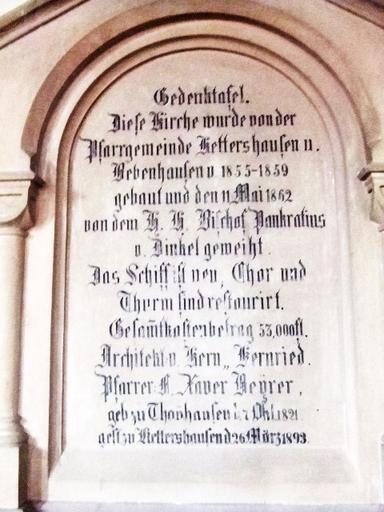 Gedenktafel.
Diese Kirche wurde von der
Pfarrgemeinde Kettershausen u.
Bebenhausen v 1855-1859
gebaut und den 11 Mai 1862
von dem H. H. Bischof Pankratius
v. Dinkel geweiht.
Das Schiff ist neu, Chor und
Thurm sind restaurirt.
Gesam̅tkostenbetrag 53,000fl.
Architekt v. Kern„ Kernried.
Pfarrer: F. Xaver Beyrer,
geb zu Thanhausen d. 7 Okt. 1821
gest zu Kettershausen d 26 März 1893.